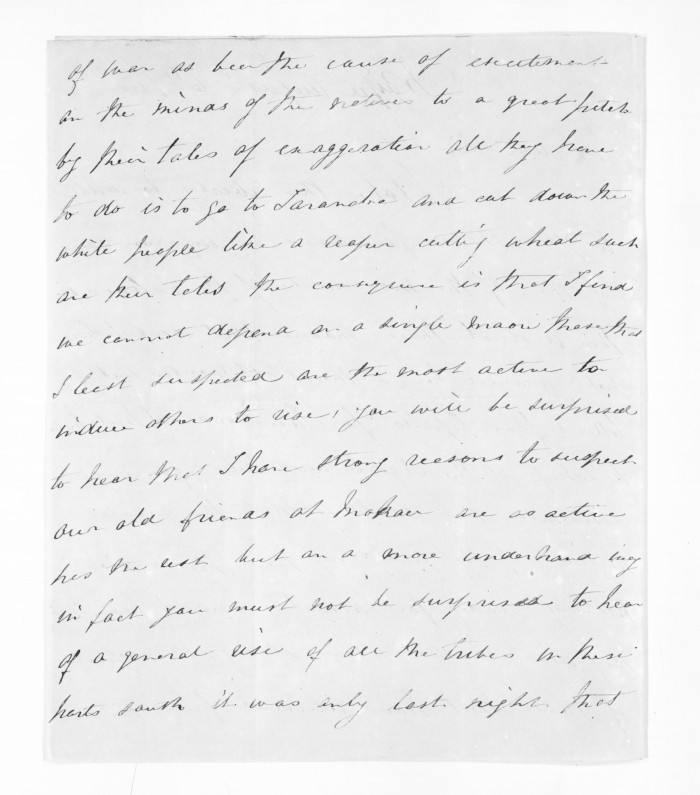 of war as been the cause of excitement
on the minds of the natives to a great pitch
by their tales of exaggeration all they have
to do is to go to Taranaka and cut down the
white people like a reaper cutting wheat such
are their tales the consequence is that I find
we cannot depend on a single maori those that
I least suspected are the most active to
induce others to rise, you will be surprised
to hear that I have strong reasons to suspect
our old friends at are as active
has the rest but on a more underhand way
in fact you must not be surprised to hear
of a general rise of all the tribes in these
parts south it was only last night that